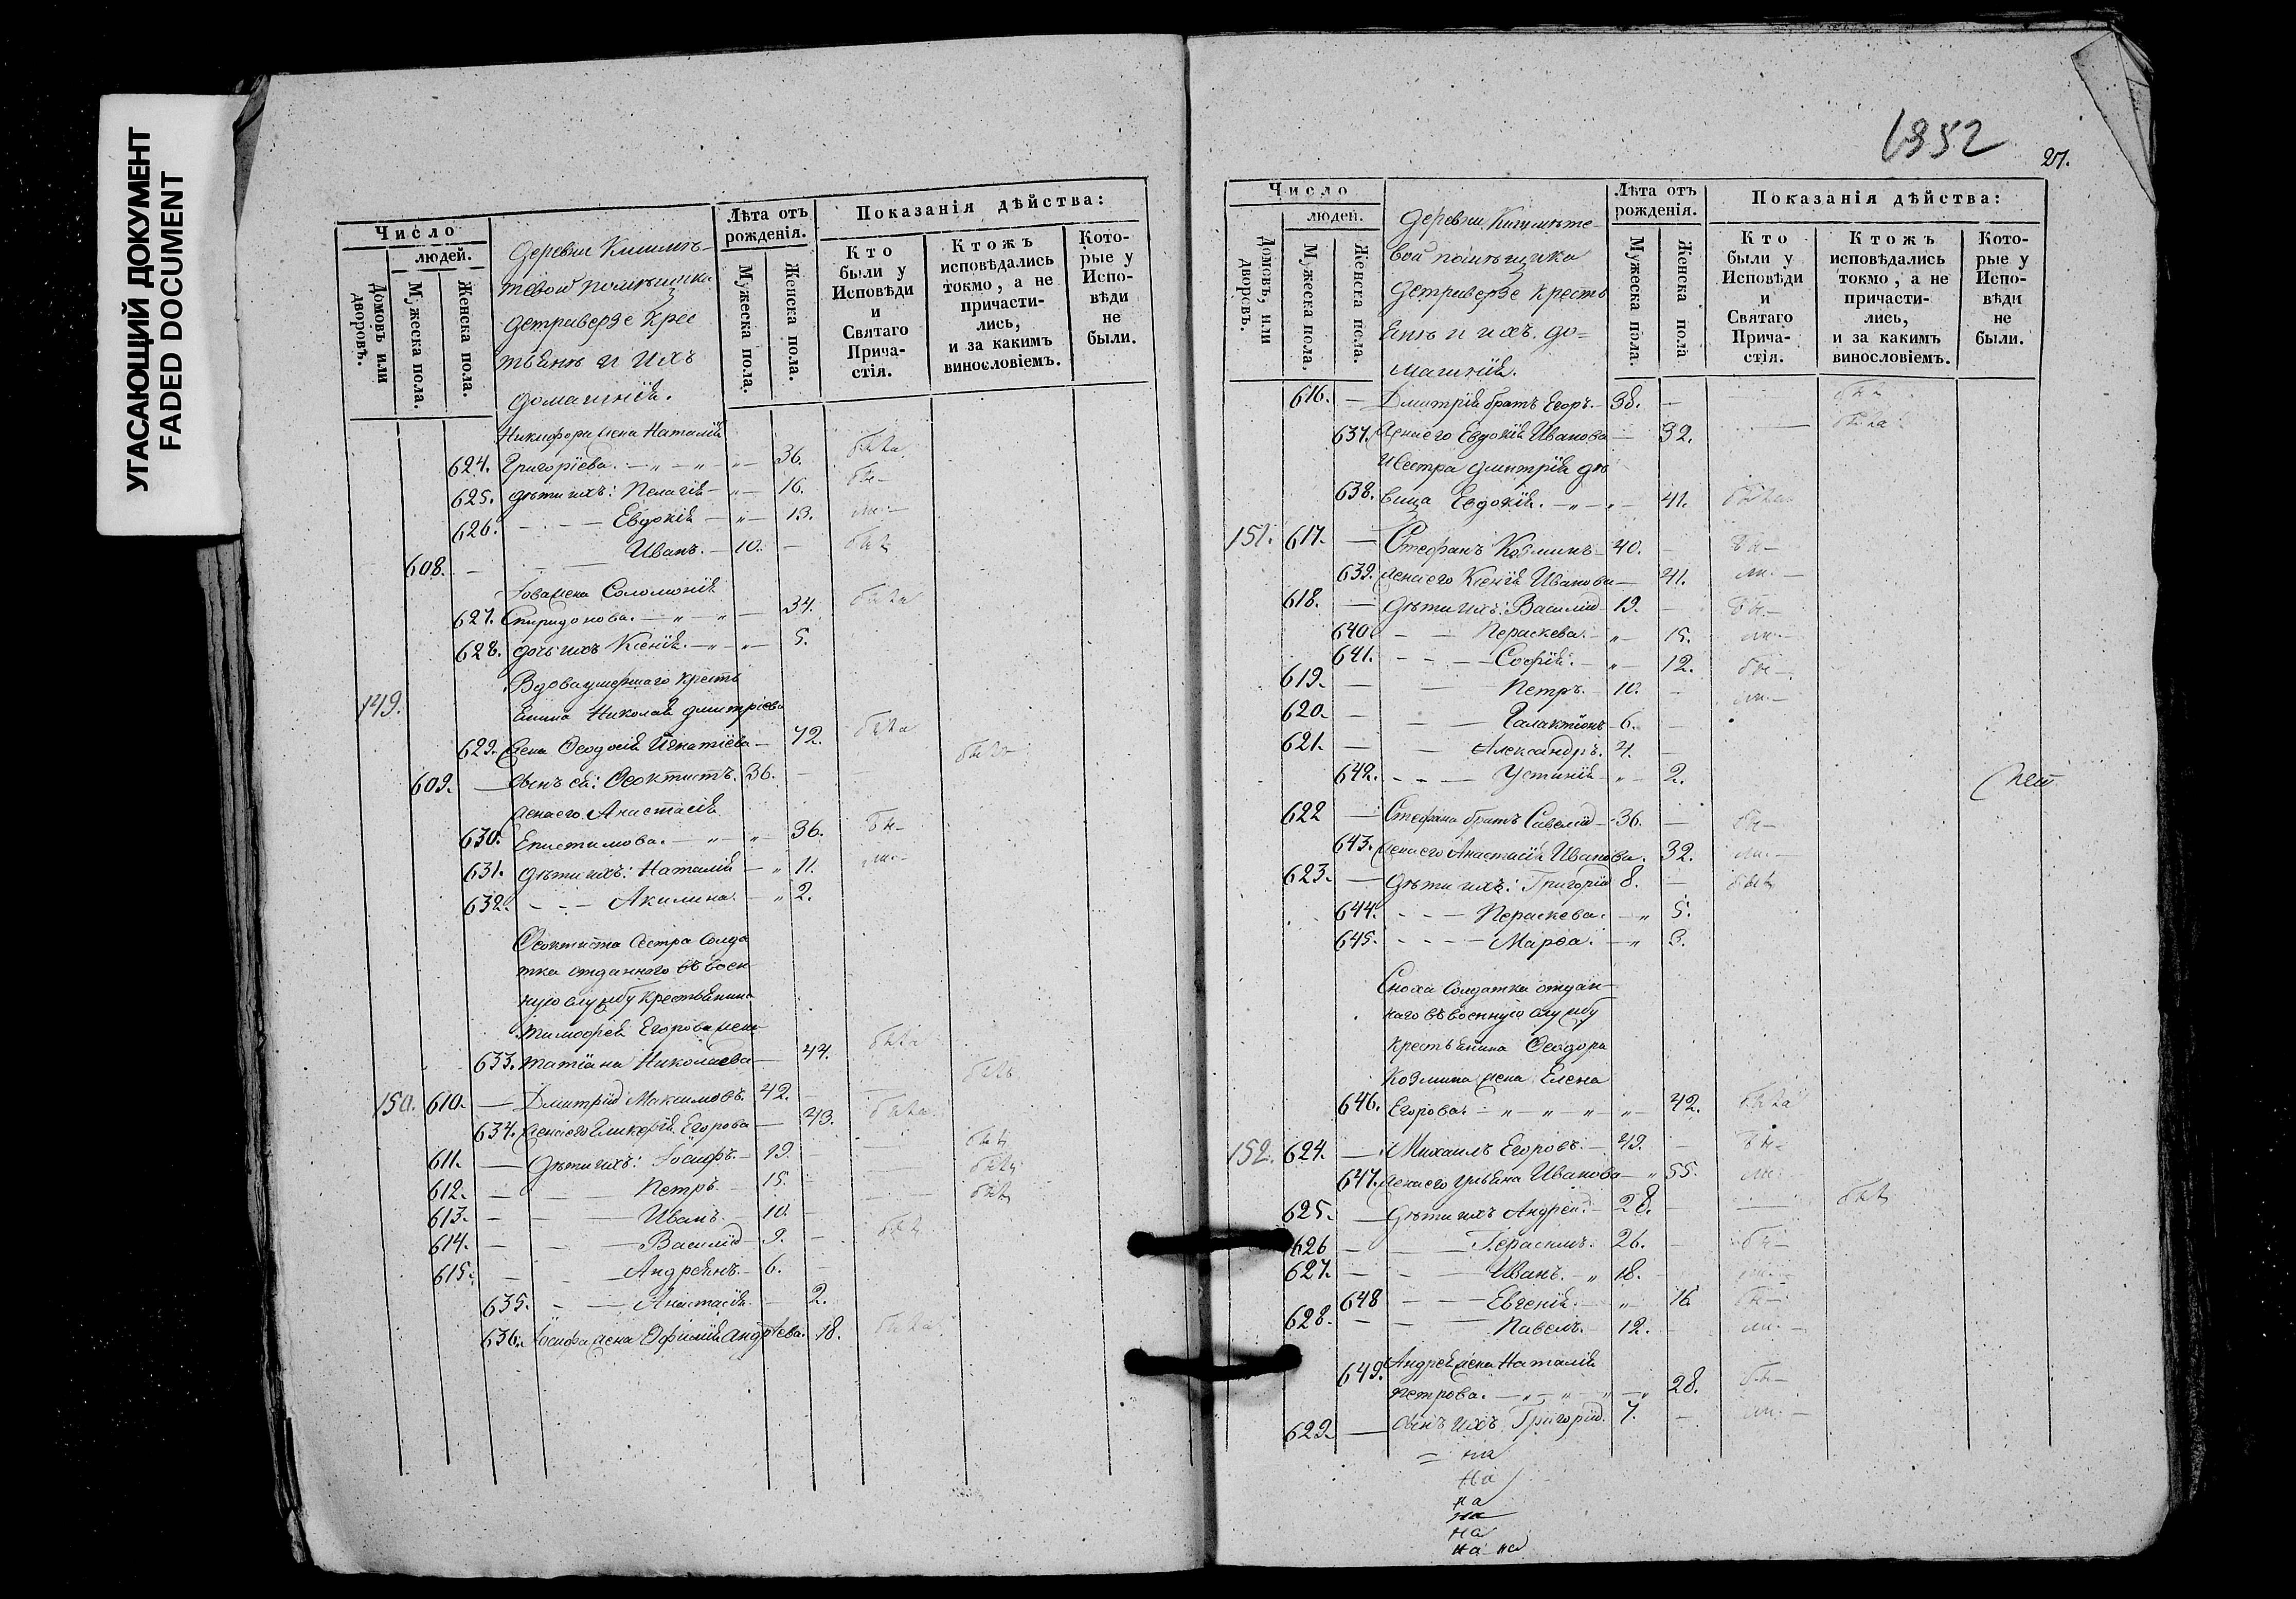 УГАСАЮЩИЙ ДОКУМЕНТ
FADED DOCUMENT
Число
людей.
Домовъ или дворовъ.
Мужеска пола.
Женска пола.
деревни
помѣщика
Детриверзе Крес
тьянъ и ихъ
домашнія.
Лѣта отъ рожденія.
Мужеска пола.
Женска пола.
Показанія дѣйства:
Кто были у Исповѣди и Святаго Прича-стія.
Ктожъ исповѣдались токмо, а не причасти-лись, и за какимъ винословіемъ.
Кото-рые у Испо-вѣди не были.
Никифора жена Наталія
624. Григоріева. — „ — „ — 36. была
625. дѣти ихъ: Пелагія — „ — 16. бы—
626. — — — Евдокія — „ — 13. ли.—
608. — — — Иванъ. — 10. — былъ
Іова жена Соломонія
627. Спиридонова. — „ — „ — 34. была
628. дочь ихъ Ксенія. — „ — „ — 5.
149. Вдова умершаго кресть
янина Николая Дмитріева
629. жена Ѳеодосія Игнатіева — 72. была
609. — сынъ ея: Ѳеоктистъ. 36. — — былъ
жена его Анастасія
630. Епистимова. — „ — „ — 36. бы—
631. дѣти ихъ: Наталія — „ 11. ли.—
632. — — — Акилина. — „ 2.
Ѳеоктиста сестра солда
тка отданного въ воен
ную службу крестьянина
Тимофея Егорова жена
633. Татіана Николаева — 44. была
150. 610. — Дмитрій Максимовъ. 42. — — былъ
634. жена его Гликерія Егорова — 43. была
611. — дѣти ихъ: Іосифъ. — 19. — — былъ
612. — — — Петръ. — 15. — — былъ
613. — — — Иванъ. — 10. — — былъ
614. — — — Василій — 9. — былъ
615. — — — Андреянъ. — 6. —
635. — — Анастасія. — 2.
636. Іосифа жена Офимія Андрѣева. 18. была
1852
27.
Число
людей.
Домовъ, или дворовъ.
Мужеска пола.
Женска пола.
деревни
вой помѣщика
Детриверзе кресть
янъ и ихъ до=
машнія.
Лѣта отъ рожденія.
Мужеска пола.
Женска пола
Показанія дѣйства:
Кто были у Исповѣди и Святаго Прича-стія.
Ктожъ исповѣдались токмо, а не причасти-лись, и за какимъ винословіемъ.
Кото-рые у Испо-вѣди не были.
616. — Дмитрія братъ Егоръ. — 38. —
637. жена его Евдокія Иванова — 32. — была
и сестра Дмитрія дѣ
638. вица Евдокія. — „ — „ — 41. была
151. 617. — Стефанъ Козминъ — 40. — бы—
639. жена его Ксенія Иванова — 41. ли.—
618. — дѣти ихъ: Василій — 19. — бы.—
640. — — Пераскева. — „ — 15. ли.—
641. — — — Софія. — „ — 12. бы—
619. — — Петръ. — 10. — ли.—
620. — — — Галактіонъ — 6. —
621. — — Александръ. 4. —
642. — — — Устинія — „ — 2.
622 — Стефана братъ Савелій — 36. — бы—
643. жена его Анастасія Иванова. 32. ли.—
623. — дѣти ихъ: Григорій 8. — былъ
644. — — — Пераскева. — „ 5.
645. — — — — Марѳа. — „ 3.
Сноха солдатка отдан—
наго въ военную службу
крестьянина Ѳеодора
Козмина жена Елена
646. Егорова. — „ — „ — „ — „ — 42. была
152. 624. — Михаилъ Егоровъ. — 49. — бы—
647. жена его Ульяна Иванова — „ 55. ли.
625. — дѣти ихъ Андрей. — 28. — — былъ
626 — — — Герасимъ. 26. — бы—
627. — — — Иванъ. — „ 18. — ли.—
648 — — — Евгенія. — „ — 16. бы—
628. — — — Павелъ. — 12. — ли.—
Андрея жена Наталія
649. Петрова. — „ — „ — „ — „ 28. бы—
629. — сынъ ихъ Григорій. 7. — ли.—
= на
на
на
на
на
на на